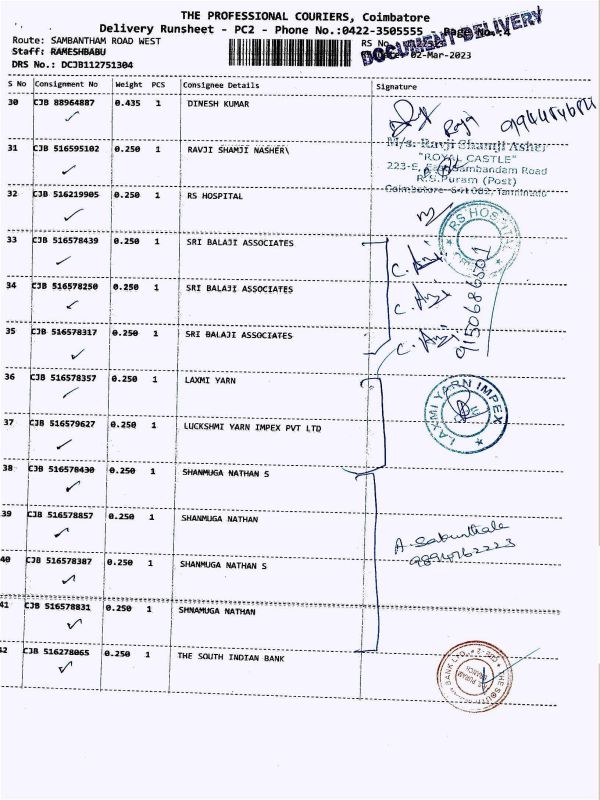 THE PROFESSIONAL COURIERS, Coimbatore
Delivery Runsheet - PC2 - Phone No.:0422-3505555 Page No.:4
DOCUMENT DELIVERY
Route: SAMBANTHAM ROAD WEST
RS No
Staff: RAMESHBABU
02-Mar-2023
DRS No.: DCJB112751304
S No Consignment No Weight PCS Consignee Details Signature
30 CJB 88964887 0.435 1 DINESH KUMAR
Raja
31 CJB 516595102 0.250 1 RAVJI SHAMJI NASHER\
M/s. Ravji Shamji Asher
"ROYAL CASTLE"
223-E, East Sambandam Road
R.S.Puram (Post)
Coimbatore-641 002, Tamilnadu
32 CJB 516219905 0.250 1 RS HOSPITAL
RS HOSPITAL
33 CJB 516578439 0.250 1 SRI BALAJI ASSOCIATES
34 CJB 516578250 0.250 1 SRI BALAJI ASSOCIATES
9150686501
35 CJB 516578317 0.250 1 SRI BALAJI ASSOCIATES
36 CJB 516578357 0.250 1 LAXMI YARN
LAXMI YARN IMPEX
37 CJB 516579627 0.250 1 LUCKSHMI YARN IMPEX PVT LTD
38 CJB 516578430 0.250 1 SHANMUGA NATHAN S
39 CJB 516578857 0.250 1 SHANMUGA NATHAN
9894762223
40 CJB 516578387 0.250 1 SHANMUGA NATHAN S
41 CJB 516578831 0.250 1 SHNAMUGA NATHAN
42 CJB 516278065 0.250 1 THE SOUTH INDIAN BANK